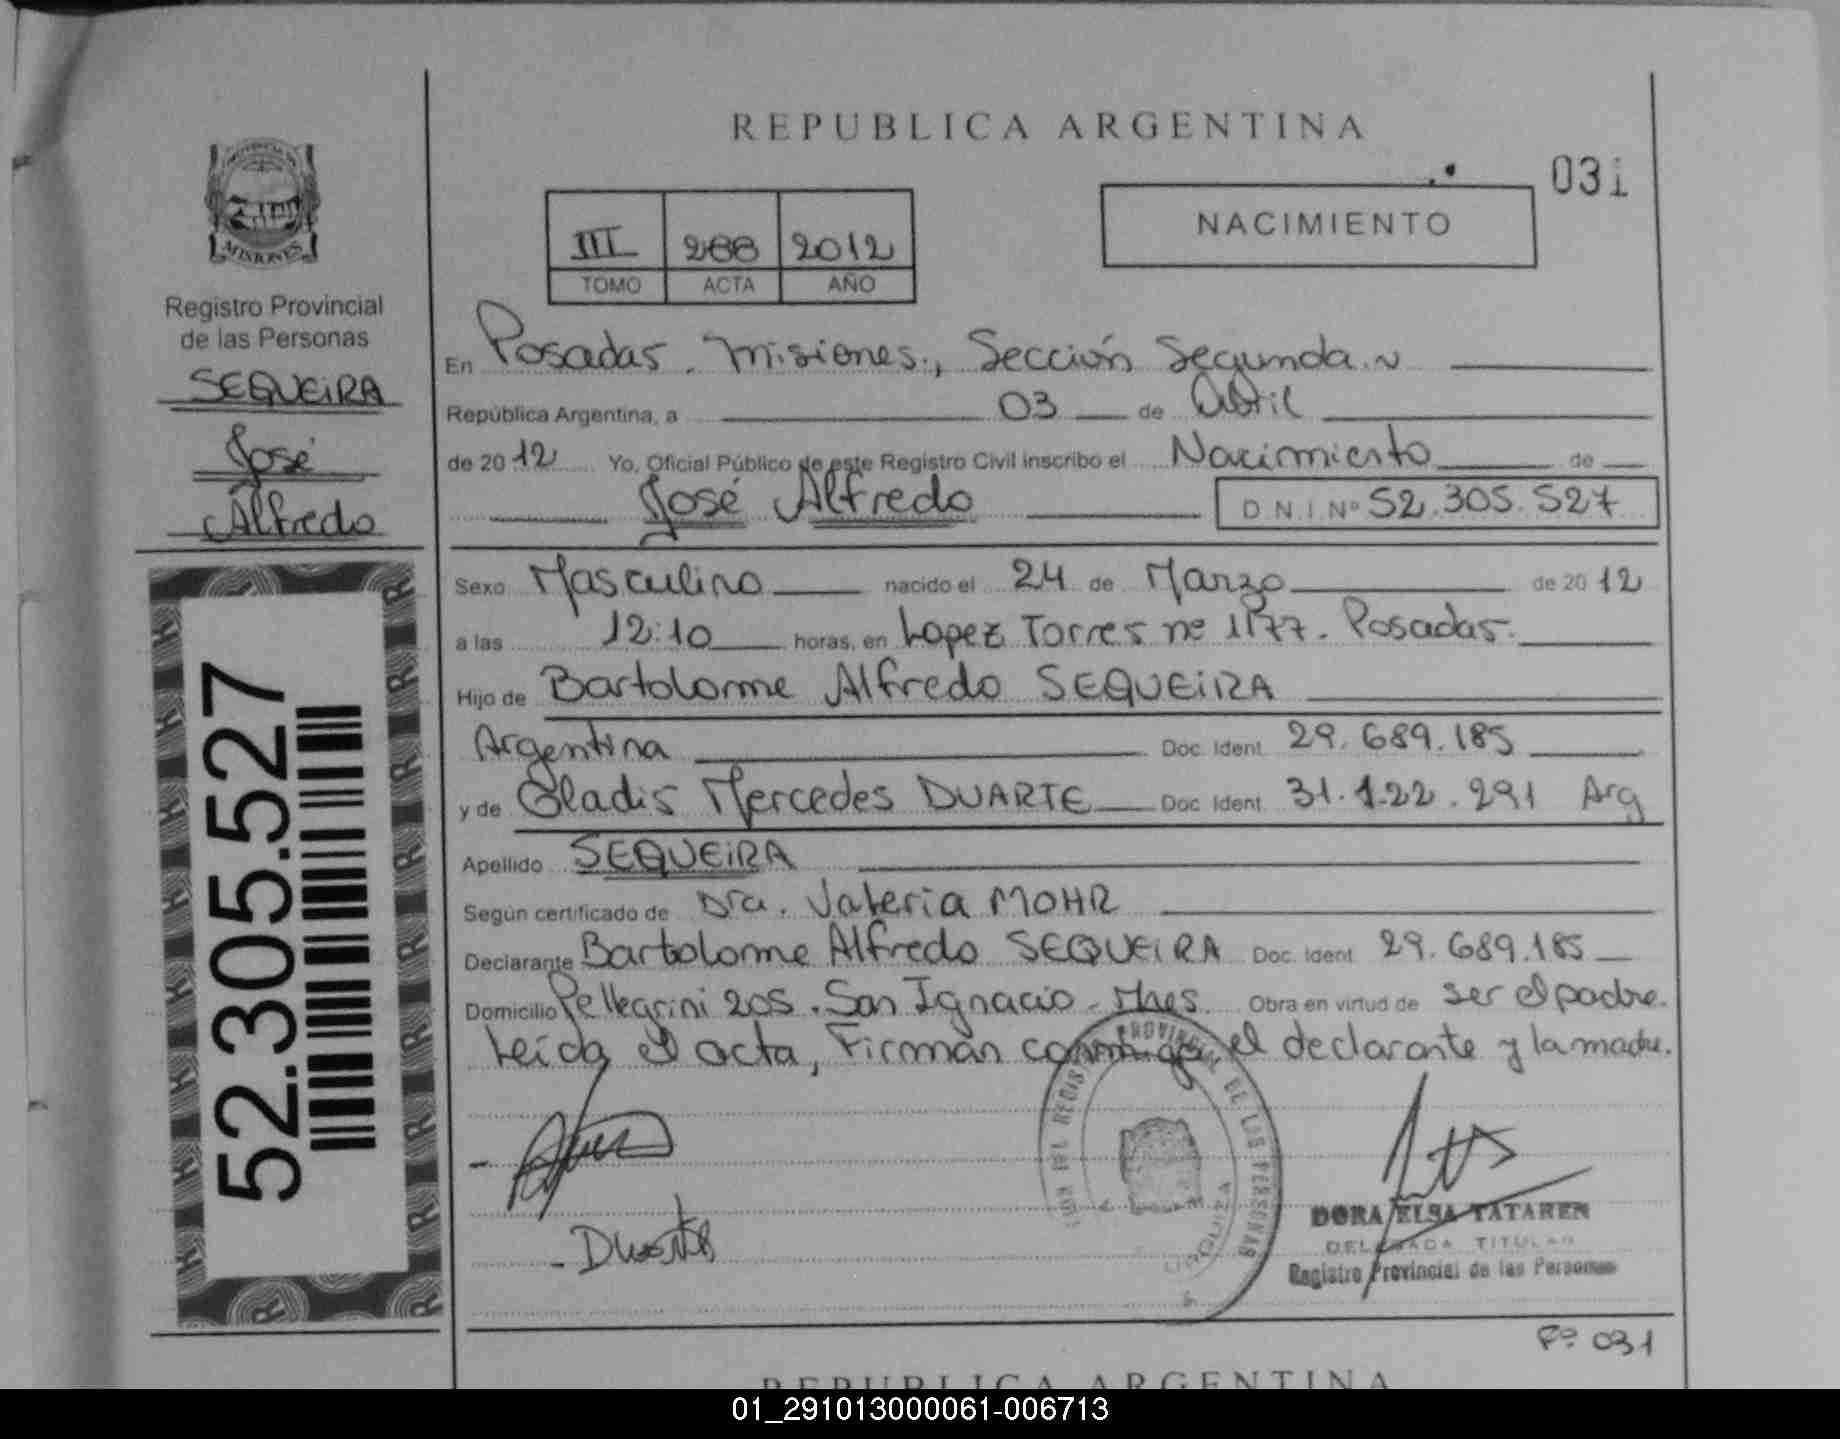 REPUBLICA ARGENTINA
031
NACIMIENTO
III 288 2012
TOMO ACTA AÑO
MISIONES
Registro Provincial
de las Personas
SEQUEIRA
José
Alfredo
52.305.527
En Posadas. Misiones., Sección Segunda.
República Argentina, a 03 de Abril
de 2012 Yo, Oficial Público de este Registro Civil inscribo el Nacimiento de
José Alfredo D.N.I.Nº 52.305.527
Sexo Masculino nacido el 24 de Marzo de 2012
a las 12:10 horas, en Lopez Torres nº 1177. Posadas.
Hijo de Bartolome Alfredo SEQUEIRA
Argentina Doc. Ident. 29.689.185
y de Gladis Mercedes DUARTE Doc. Ident. 31.122.291 Arg
Apellido SEQUEIRA
Según certificado de Dra. Valeria MOHR
Declarante Bartolome Alfredo SEQUEIRA Doc. Ident. 29.689.185
Domicilio Pellegrini 205. San Ignacio - Mnes. Obra en virtud de ser el padre.
Leída el acta, Firman conmigo, el declarante y la madre.
Duarte
DORA ELSA TATAREN
DELEGADA TITULAR
Registro Provincial de las Personas
Fº 031
REPUBLICA ARGENTINA
01_291013000061-006713